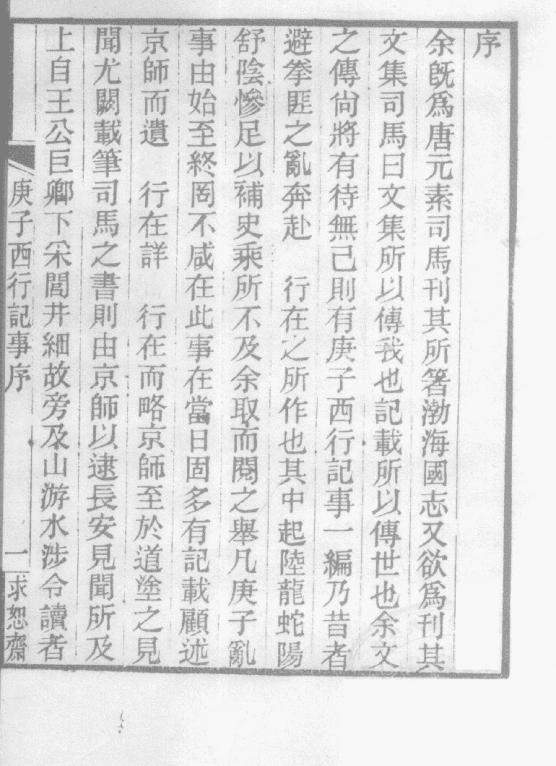 序
余既爲唐元素司馬刊其所箸渤海國志又欲爲刊其
文集司馬曰文集所以傳我也記載所以傳世也余文
之傳尙將有待無已則有庚子西行記事一編乃昔者
避拳匪之亂奔赴　行在之所作也其中起陸龍蛇陽
舒陰慘足以補史乘所不及余取而閱之舉凡庚子亂
事由始至終罔不咸在此事在當日固多有記載顧述
京師而遺　行在詳　行在而略京師至於道塗之見
聞尤闕載筆司馬之書則由京師以逮長安見聞所及
上自王公巨卿下采閭井細故旁及山游水涉令讀者
庚子西行記事序　一　求恕齋